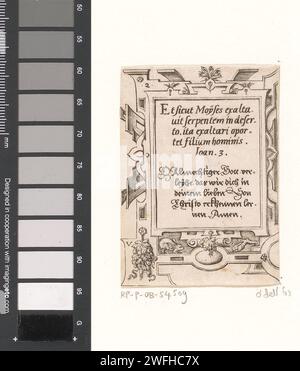 50
55
60
65
70
75
80
85
90
95
G
mm
Designed in cooperation with imagingetc.com
2
Et sicut Moyses exalta
uit serpentem in deser
to. ita exaltari opor
tet filium hominis.
Ioan. 3.
Almechtiger Gott ver
leihe das wir dich in
deinem lieben Son
Christo erkennen ler
nen. Amen.
RP-P-OB-54.509
alamy
www.alamy.com
2WFHC7X